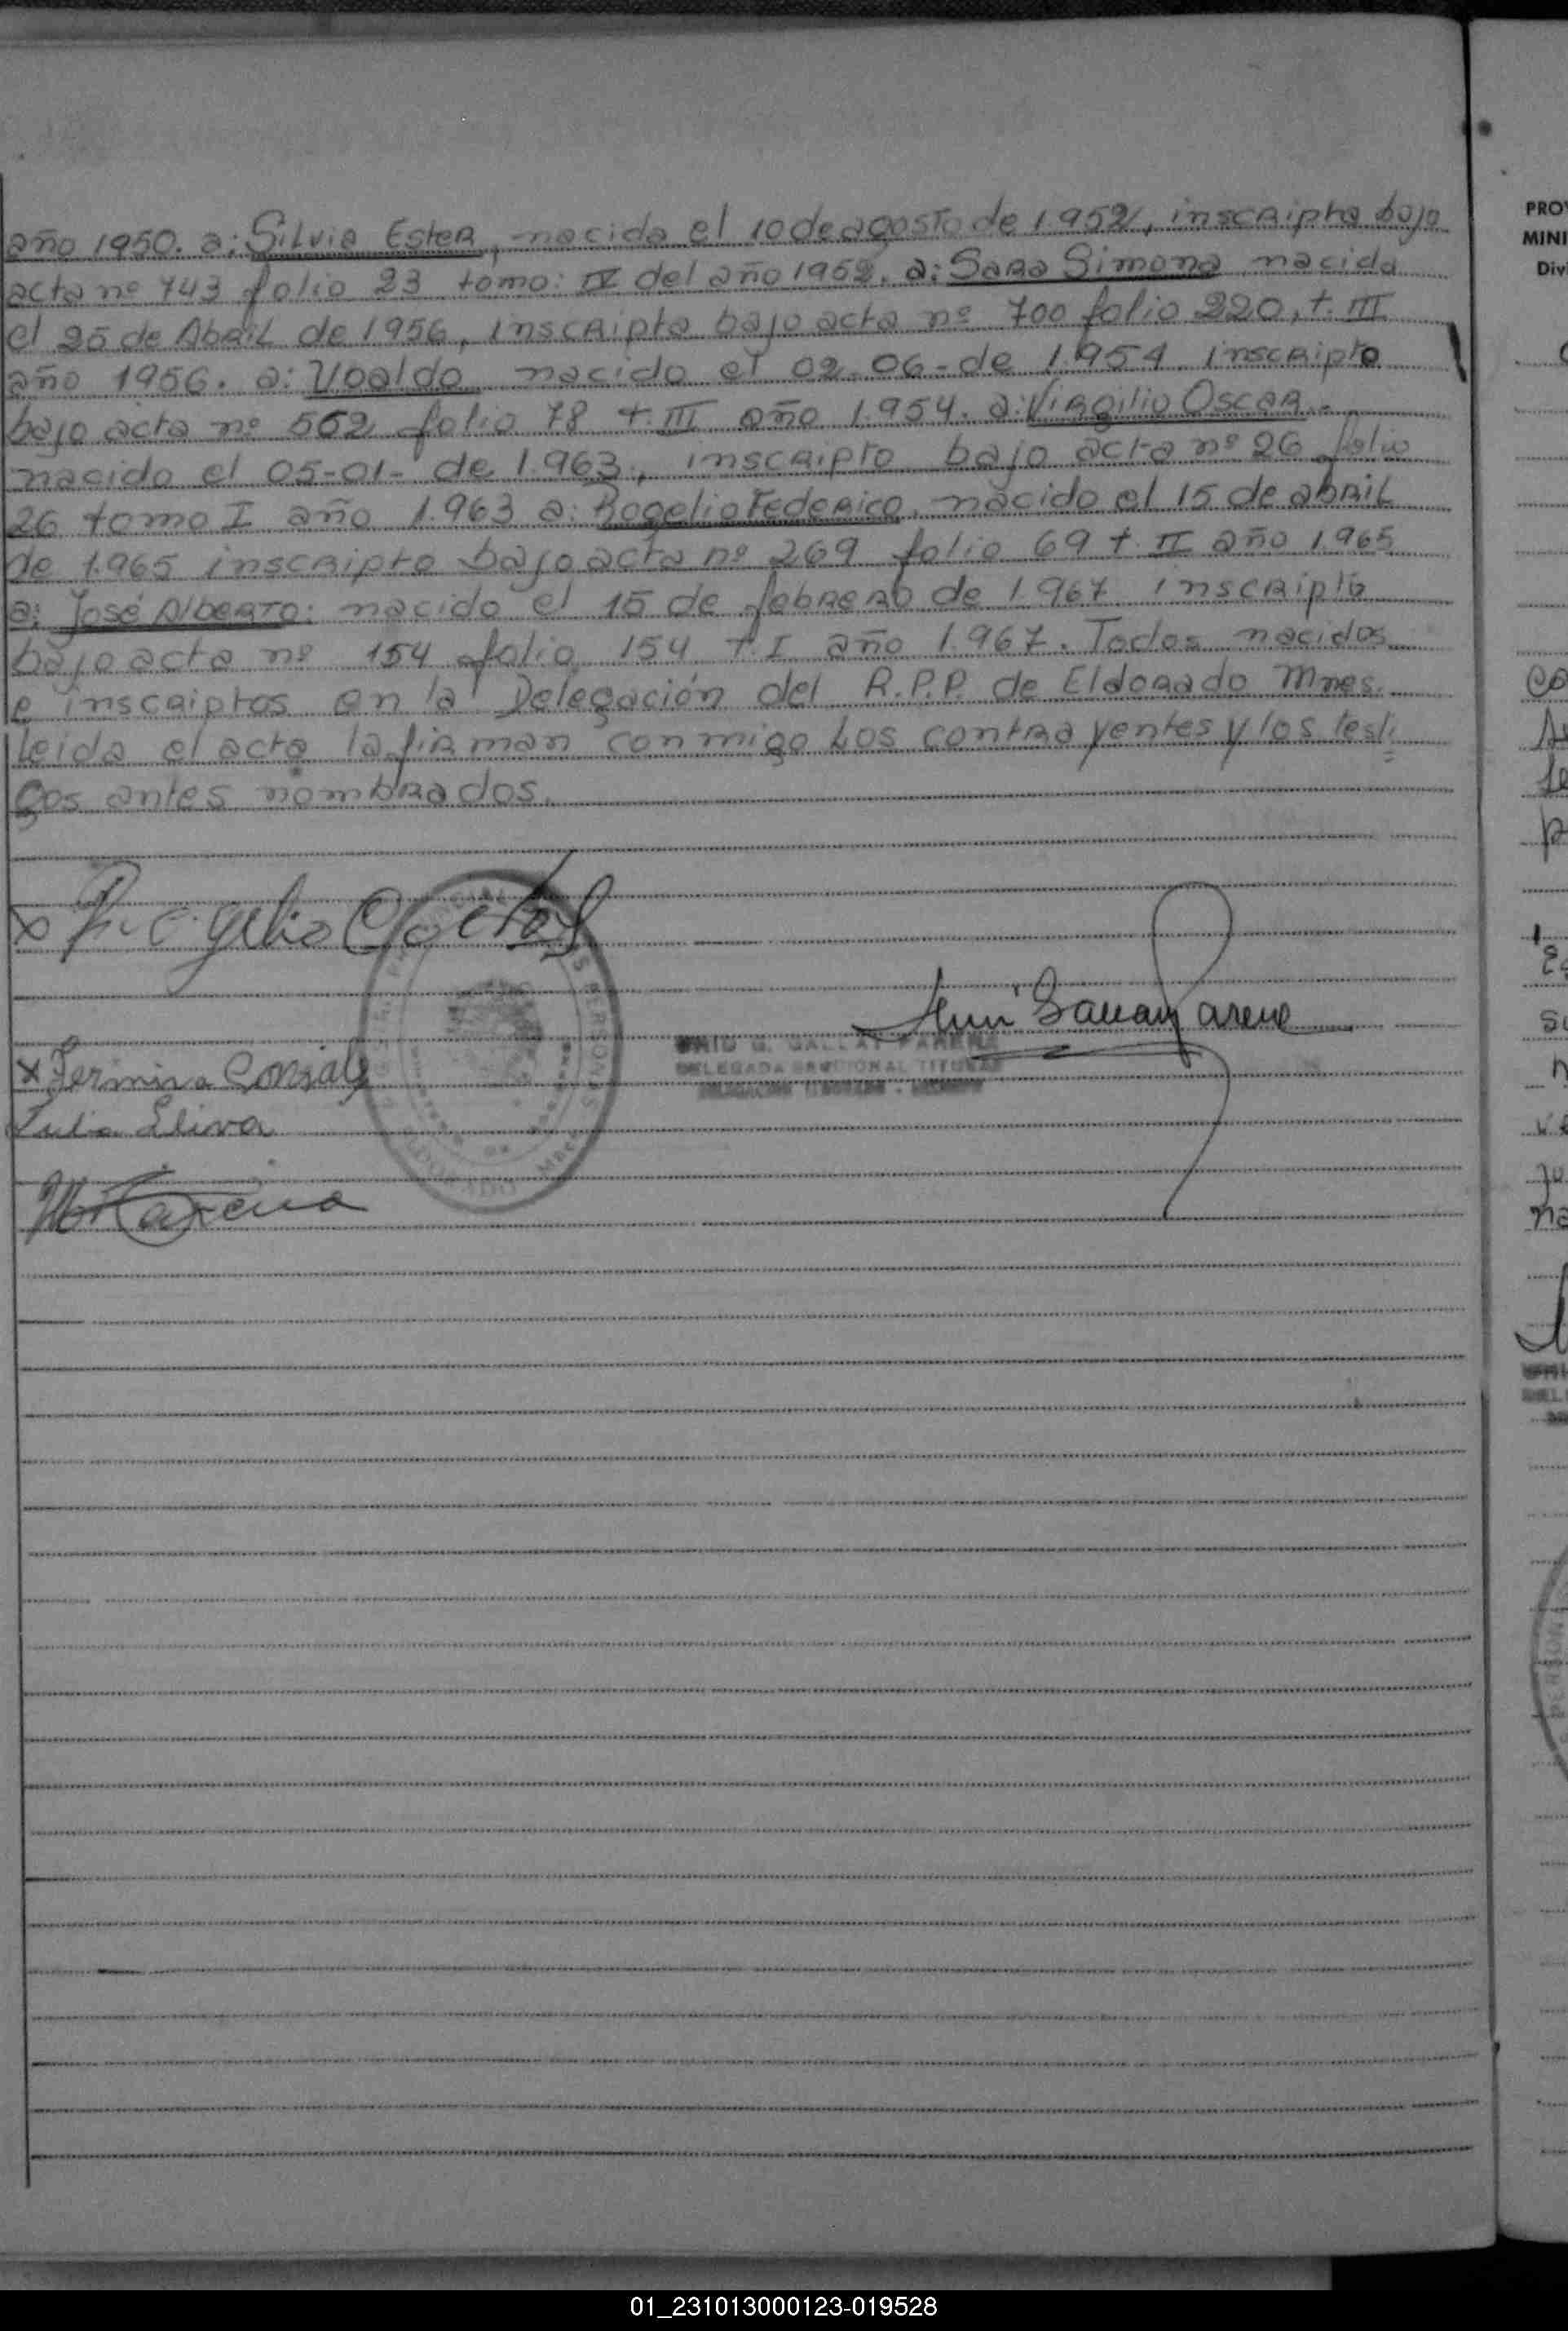 año 1950. a: Silvia Ester, nacida el 10 de agosto de 1.952, inscripta bajo
acta nº 743 folio 23 tomo: IV del año 1952. a: Sara Simona nacida
el 25 de Abril de 1956, inscripta bajo acta nº 700 folio 220, t. III
año 1956. a: Uoaldo nacido el 02-06- de 1.954 inscripto
bajo acta nº 562 folio 78 t. III año 1.954. a: Virgilio Oscar.-
nacido el 05-01- de 1.963, inscripto bajo acta nº 26 folio
26 tomo I año 1.963 a: Rogelio Federico, nacido el 15 de abril
de 1.965 inscripto bajo acta nº 269 folio 69 t. II año 1.965
a: José Alberto: nacido el 15 de febrero de 1.967 inscripto
bajo acta nº 154 folio 154 t. I año 1.967. Todos nacidos
e inscriptos en la Delegación del R.P.P. de Eldorado Mnes.
Leida el acta la firman conmigo los contrayentes y los testi
gos antes nombrados.
x
x Fermina Gonsale
DELEGADA TITULAR
PERSONAS
PROV
MINI
Div
01_231013000123-019528